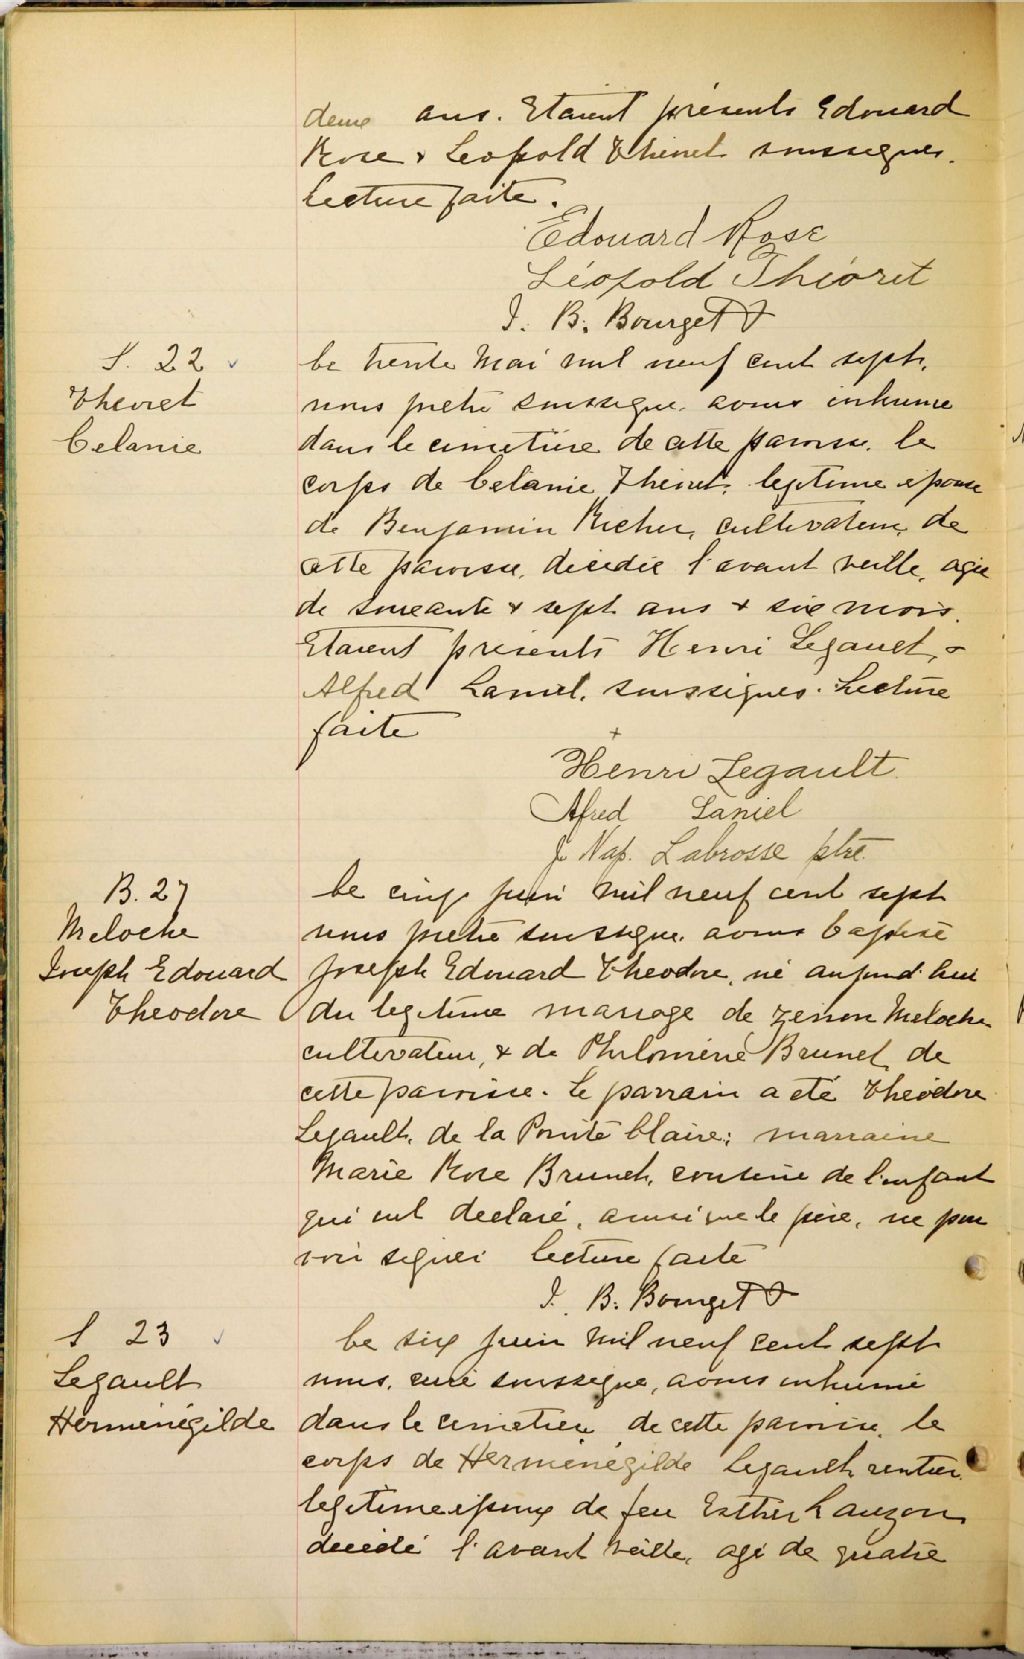 deux ans. Etaient présents Edouard
Rose & Leopold Theoret soussignes.
Lecture faite.
Edouard Rose
Léopold Théoret
J. B. Bourget
S. 22
Theoret
Celanie
Le trente Mai mil neuf cent sept,
nous pretre soussigne avons inhume
dans le cimetière de cette paroisse le
corps de Celanie Theoret, legitime epouse
de Benjamin Richer, cultivateur, de
cette paroisse, décédée l'avant veille, agée
de soixante & sept ans & six mois.
Etaient présents Henri Legault, &
Alfred Laniel, soussignes. Lecture
faite
Henri Legault
Alfred Laniel
J. Nap. Labrosse ptre
B. 27
Meloche
Joseph Edouard
Theodore
Le cinq juin mil neuf cent sept
nous pretre soussigne avons baptisé
Joseph Edouard Theodore, né aujourd'hui
du legitime mariage de Zenon Meloche
cultivateur, & de Philomène Brunet, de
cette paroisse. Le parrain a été Théodore
Legault, de la Pointe Claire; marraine
Marie Rose Brunet, cousine de l'enfant
qui ont declaré, ainsi que le père, ne pou
voir signer Lecture faite
J. B. Bourget
S 23
Legault
Herménégilde
Le six juin mil neuf cent sept
nous, curé soussigne, avons inhumé
dans le cimetière de cette paroisse, le
corps de Herménégilde Legault rentier
legitime epoux de feu Esther Lauzon
décédé l'avant veille, agé de quatre